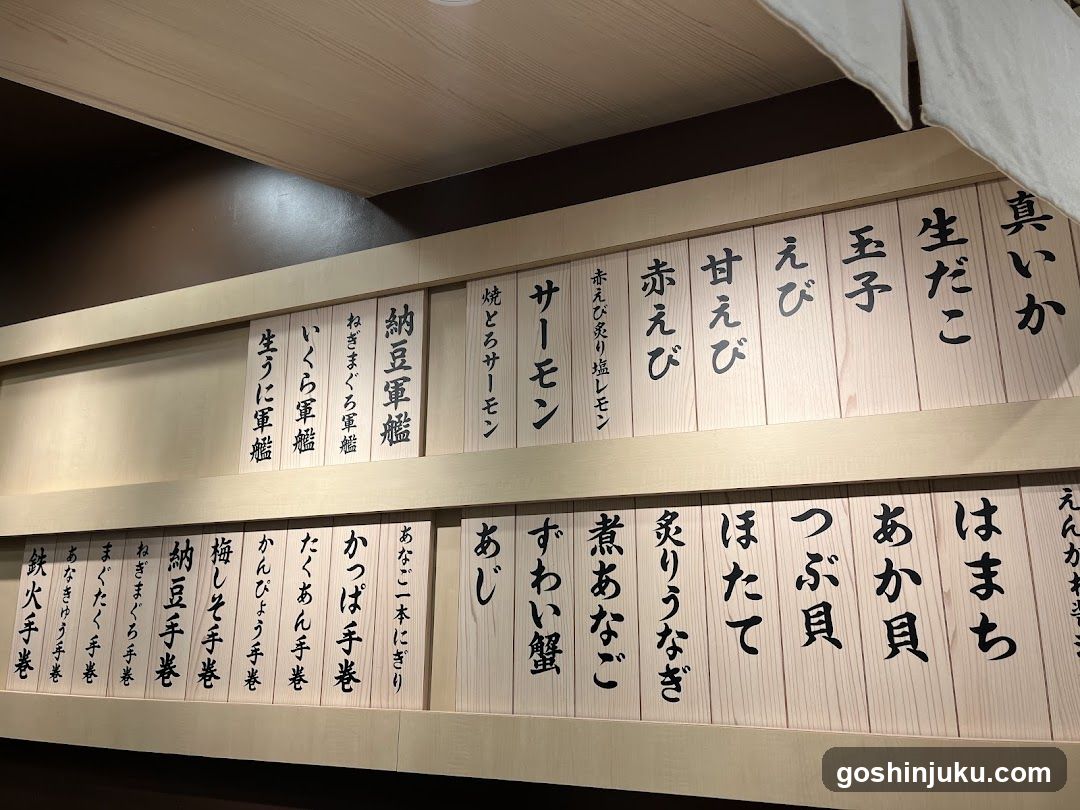 真いか
生だこ
玉子
えび
甘えび
赤えび
赤えび炙り塩レモン
サーモン
焼とろサーモン
納豆軍艦
ねぎまぐろ軍艦
いくら軍艦
生うに軍艦
えんがわ
はまち
あか貝
つぶ貝
ほたて
炙りうなぎ
煮あなご
ずわい蟹
あじ
あなご一本にぎり
かっぱ手巻
たくあん手巻
かんぴょう手巻
梅しそ手巻
納豆手巻
ねぎまぐろ手巻
まぐたく手巻
あなきゅう手巻
鉄火手巻
goshinjuku.com